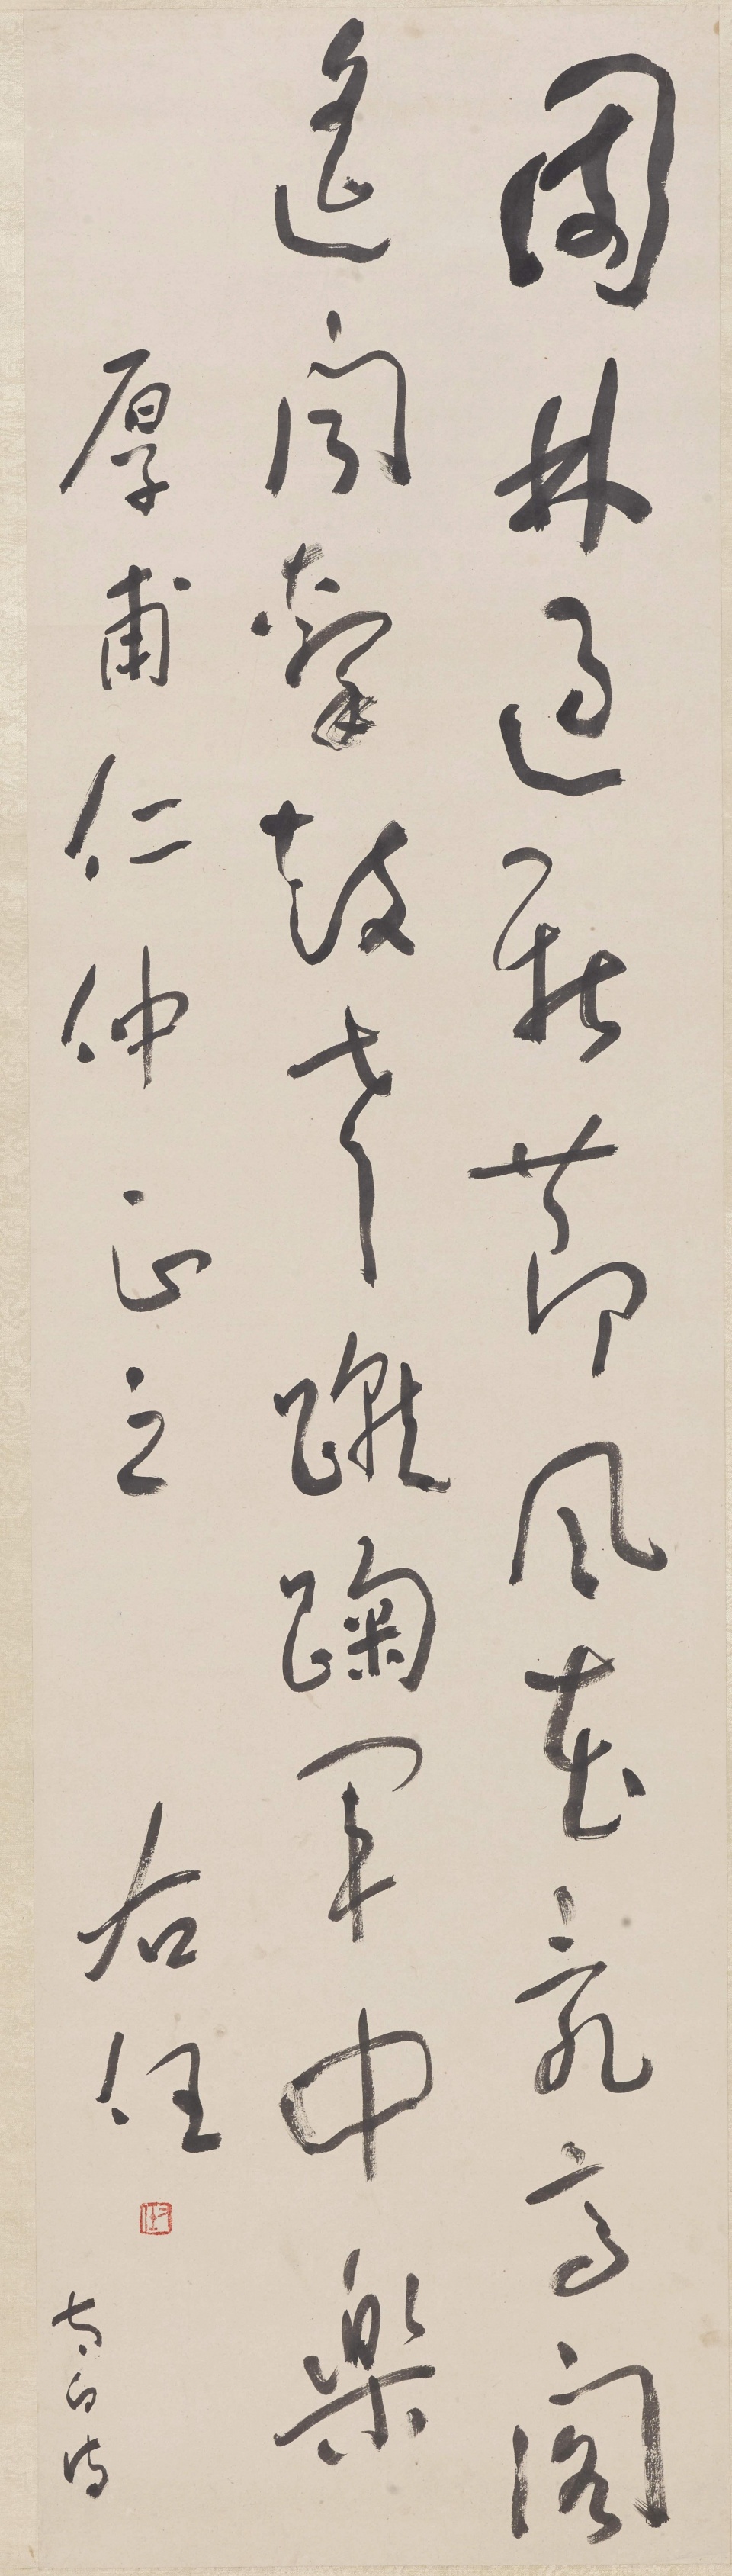 園林過新節風花亂高閣
遙聞擊鼓聲蹴踘軍中樂
厚甫仁仲正之 右任
詩